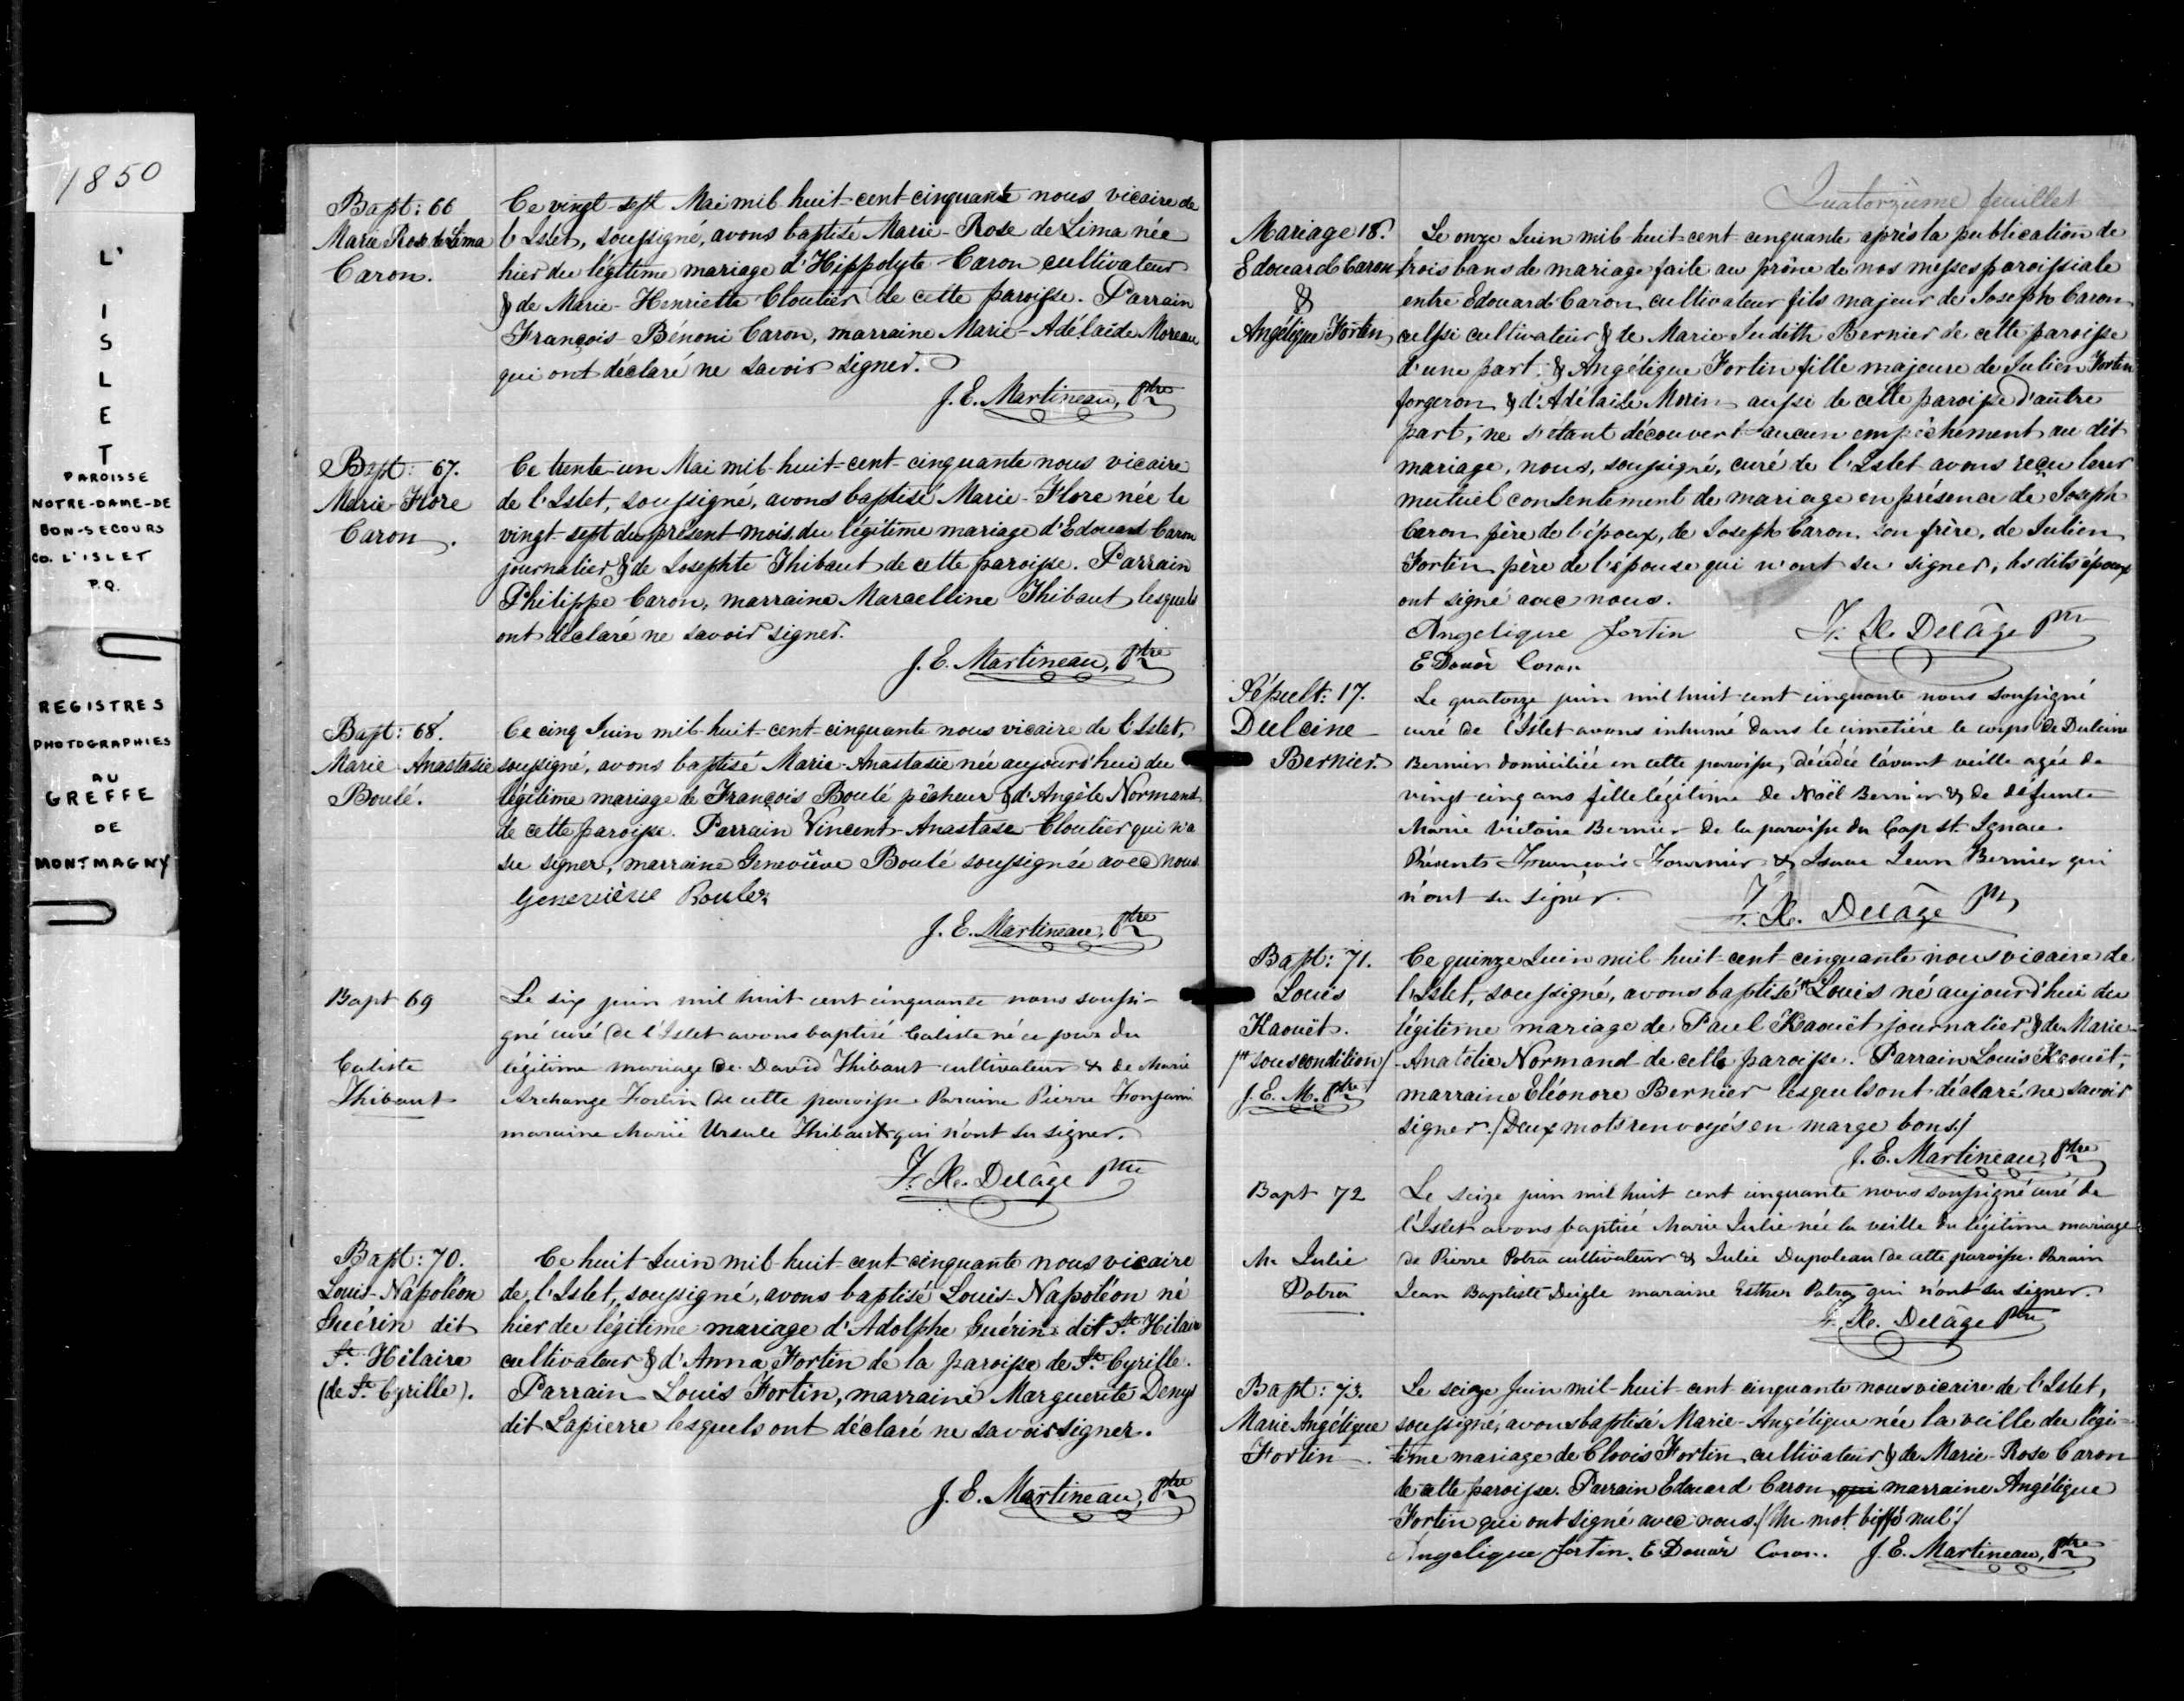 1850
L'
I
S
L
E
T
PAROISSE
NOTRE-DAME-DE
BON-SECOURS
CO. L'ISLET
P.Q.
REGISTRES
PHOTOGRAPHIES
AU
GREFFE
DE
MONTMAGNY
Bapt: 66
Marie Rose de Lima
Caron.
Ce vingt-sept Mai mil-huit-cent-cinquante nous vicaire de
l'Islet, soussigné, avons baptisé Marie-Rose de Lima née
hier du légitime mariage d'Hippolyte Caron cultivateur
& de Marie-Henriette Cloutier de cette paroisse. Parrain
François-Bénoni Caron, marraine Marie-Adélaïde Moreau
qui ont déclaré ne savoir signer.
J. E. Martineau, Ptre
Bapt: 67.
Marie-Flore
Caron.
Ce trente-un Mai mil-huit-cent-cinquante nous vicaire
de l'Islet, soussigné, avons baptisé Marie-Flore née le
vingt-sept du présent mois, du légitime mariage d'Edouard Caron
journalier & de Josephte Thibaut de cette paroisse. Parrain
Philippe Caron, marraine Marcelline Thibaut lesquels
ont déclaré ne savoir signer.
J. E. Martineau, Ptre
Bapt: 68.
Marie Anastasie
Boulé.
Ce cinq Juin mil-huit-cent-cinquante nous vicaire de l'Islet,
soussigné, avons baptisé Marie-Anastasie née aujourd'hui du
légitime mariage de François Boulé pêcheur & d'Angèle Normand
de cette paroisse. Parrain Vincent-Anastase Cloutier qui n'a
su signer, marraine Geneviève Boulé soussignée avec nous.
Genevieve Boulez
J. E. Martineau, Ptre
Bapt 69
Caliste
Thibaut
Le six juin mil huit cent cinquante nous soussi-
gné curé de l'Islet avons baptisé Caliste né ce jour du
légitime mariage de David Thibaut cultivateur & de Marie
Archange Fortin de cette paroisse. Paraine Pierre Fonjami
maraine Marie Ursule Thibaut qui n'ont su signer.
F. X. Delâge Ptre
Bapt: 70.
Louis-Napoléon
Guérin dit
St. Hilaire
(de St. Cyrille).
Ce huit Juin mil-huit-cent-cinquante nous vicaire
de l'Islet, soussigné, avons baptisé Louis-Napoléon né
hier du légitime mariage d'Adolphe Guérin dit St. Hilaire
cultivateur & d'Anna Fortin de la paroisse de St. Cyrille.
Parrain Louis Fortin, marraine Marguerite Denys
dit Lapierre lesquels ont déclaré ne savoir signer.
J. E. Martineau, Ptre
Quatorzième feuillet
Mariage 18.
Edouard Caron
&
Angélique Fortin
Le onze Juin mil-huit-cent cinquante après la publication de
trois bans de mariage faite au prône de nos messes paroissiale
entre Edouard Caron cultivateur fils majeur de Joseph Caron
aussi cultivateur & de Marie Judith Bernier de cette paroisse
d'une part; & Angélique Fortin fille majeure de Julien Fortin
forgeron & d'Adélaïde Morin aussi de cette paroisse d'autre
part, ne s'etant découvert aucun empêchement au dit
mariage, nous, soussigné, curé de l'Islet avons reçu leur
mutuel consentement de mariage en présence de Joseph
Caron père de l'époux, de Joseph Caron son frère, de Julien
Fortin père de l'épouse qui n'ont su signer, les dits époux
ont signé avec nous.
Angelique fortin
F. X. Delâge Ptre
E Douàr Caron
Sépult: 17.
Dulcine
Bernier.
Le quatorze juin mil huit cent cinquante nous soussigné
curé de l'Islet avons inhumé dans le cimetière le corps de Dulcine
Bernier domiciliée en cette paroisse, décédée l'avant veille agée de
vingt cinq ans fille légitime de Noël Bernier & de défunte
Marie Victoire Bernier de la paroisse du Cap St. Ignace.
Présents François Fournier & Isaac Jean Bernier qui
n'ont su signer.
F. X. Delâge Ptre
Bapt: 71.
Louis
Kaouët.
/# sous condition/
J. E. M. Ptre
Ce quinze Juin mil-huit-cent-cinquante nous vicaire de
l'Islet, soussigné, avons baptisé # Louis né aujourd'hui du
légitime mariage de Paul Kaouët journalier, & de Marie-
Anatolie Normand de cette paroisse. Parrain Louis Kaouët,
marraine Eléonore Bernier lesquels ont déclaré ne savoir
signer. /Deux mots renvoyés en marge bons./
J. E. Martineau, Ptre
Bapt 72
M. Julie
Potra
Le seize juin mil huit cent cinquante nous soussigné curé de
l'Islet avons baptisé Marie Julie née la veille du légitime mariage
de Pierre Potra cultivateur & Julie Dupoleau de cette paroisse. Parain
Jean Baptiste Deigle maraine Esther Potra qui n'ont su signer.
F. X. Delâge Ptre
Bapt: 73.
Marie Angélique
Fortin.
Le seize Juin mil-huit-cent-cinquante nous vicaire de l'Islet,
soussigné, avons baptisé Marie-Angélique née la veille du légi-
time mariage de Clovis Fortin cultivateur & de Marie-Rose Caron
de cette paroisse. Parrain Edouard Caron qui marraine Angélique
Fortin qui ont signé avec nous. /Un mot biffé nul./
Angelique fortin. E Douàr Caron. J. E. Martineau, Ptre